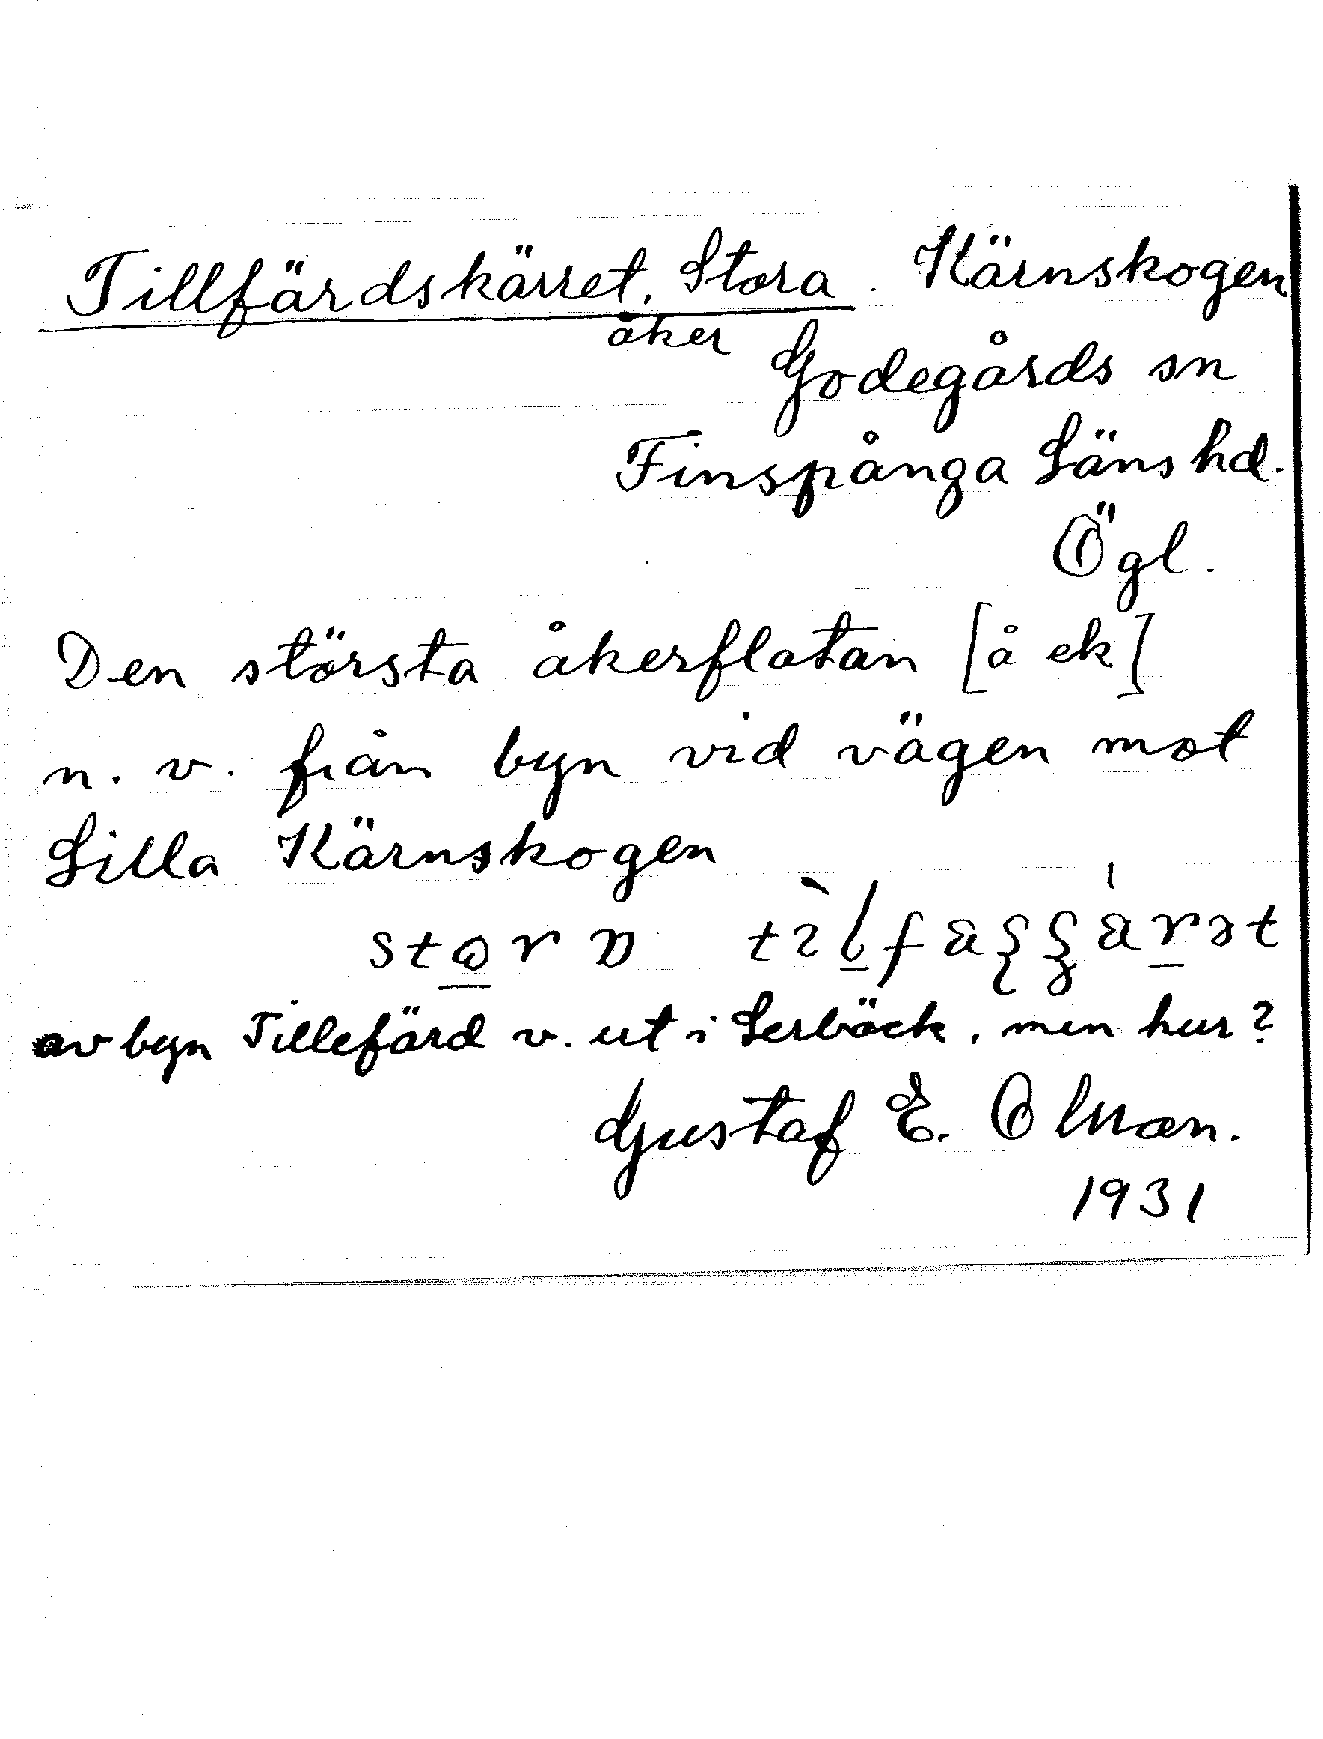 Tillfärdskärret, Stora. Kärnskogen
åker
Godegårds sn
Finspånga Läns hd.
Ögl.
Den största åkerflatan [å ek]
n. v. från byn vid vägen mot
Lilla Kärnskogen
av byn Tillefärd v. ut i Lerbäck, men hur?
Gustaf E. Olman.
1931